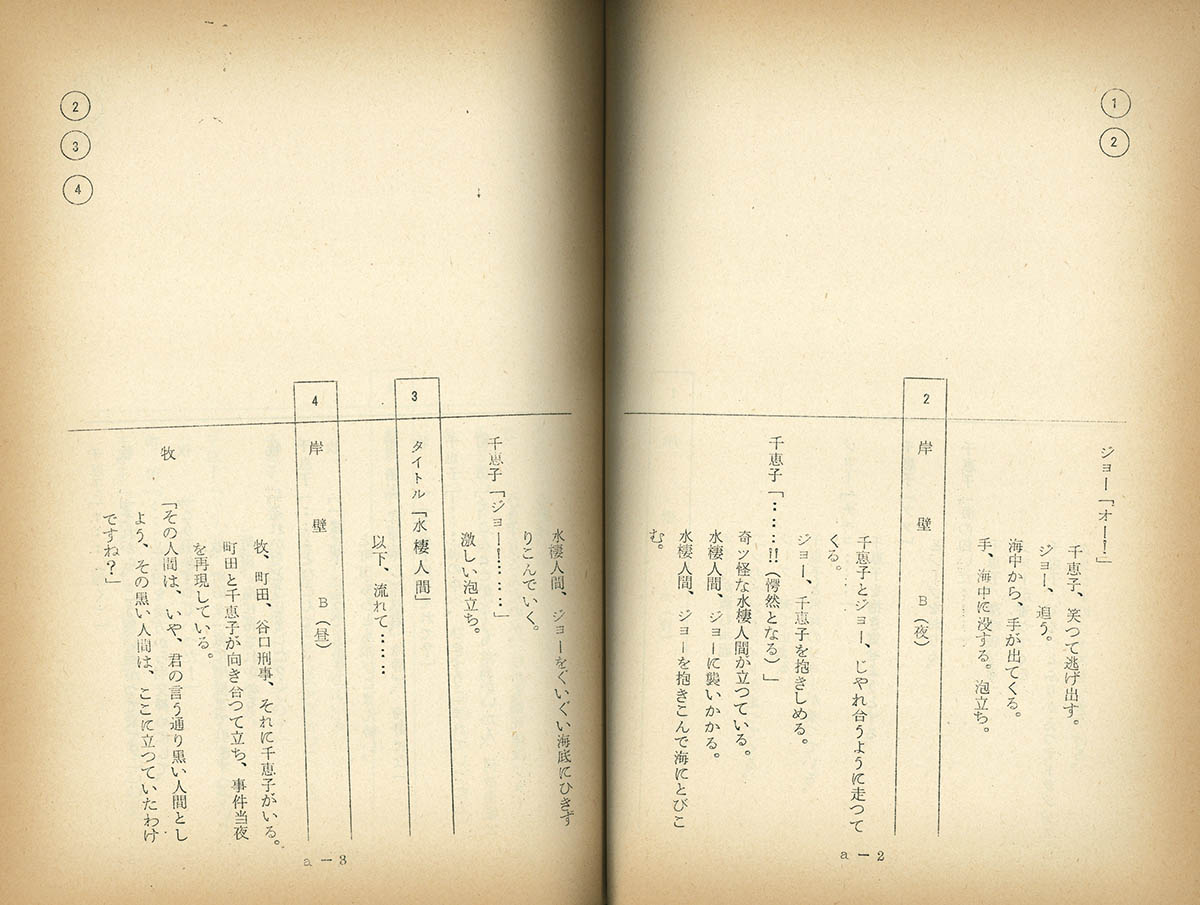 ①
②
ジョー「オー!」
千恵子、笑つて逃げ出す。
ジョー、追う。
海中から、手が出てくる。
手、海中に没する。泡立ち。
2
岸壁 B(夜)
千恵子とジョー、じやれ合うように走つて
くる。
ジョー、千恵子を抱きしめる。
千恵子「‥‥‥!!(愕然となる)」
奇ッ怪な水棲人間が立つている。
水棲人間、ジョーに襲いかかる。
水棲人間、ジョーを抱きこんで海にとびこ
む。
a-2
②
③
④
水棲人間、ジョーをぐいぐい海底にひきず
りこんでいく。
千恵子「ジョー!‥‥‥」
激しい泡立ち。
3
タイトル「水棲人間」
以下、流れて‥‥‥
4
岸壁 B(昼)
牧、町田、谷口刑事、それに千恵子がいる。
町田と千恵子が向き合つて立ち、事件当夜
を再現している。
牧 「その人間は、いや、君の言う通り黒い人間とし
よう、その黒い人間は、ここに立つていたわけ
ですね?」
a-3